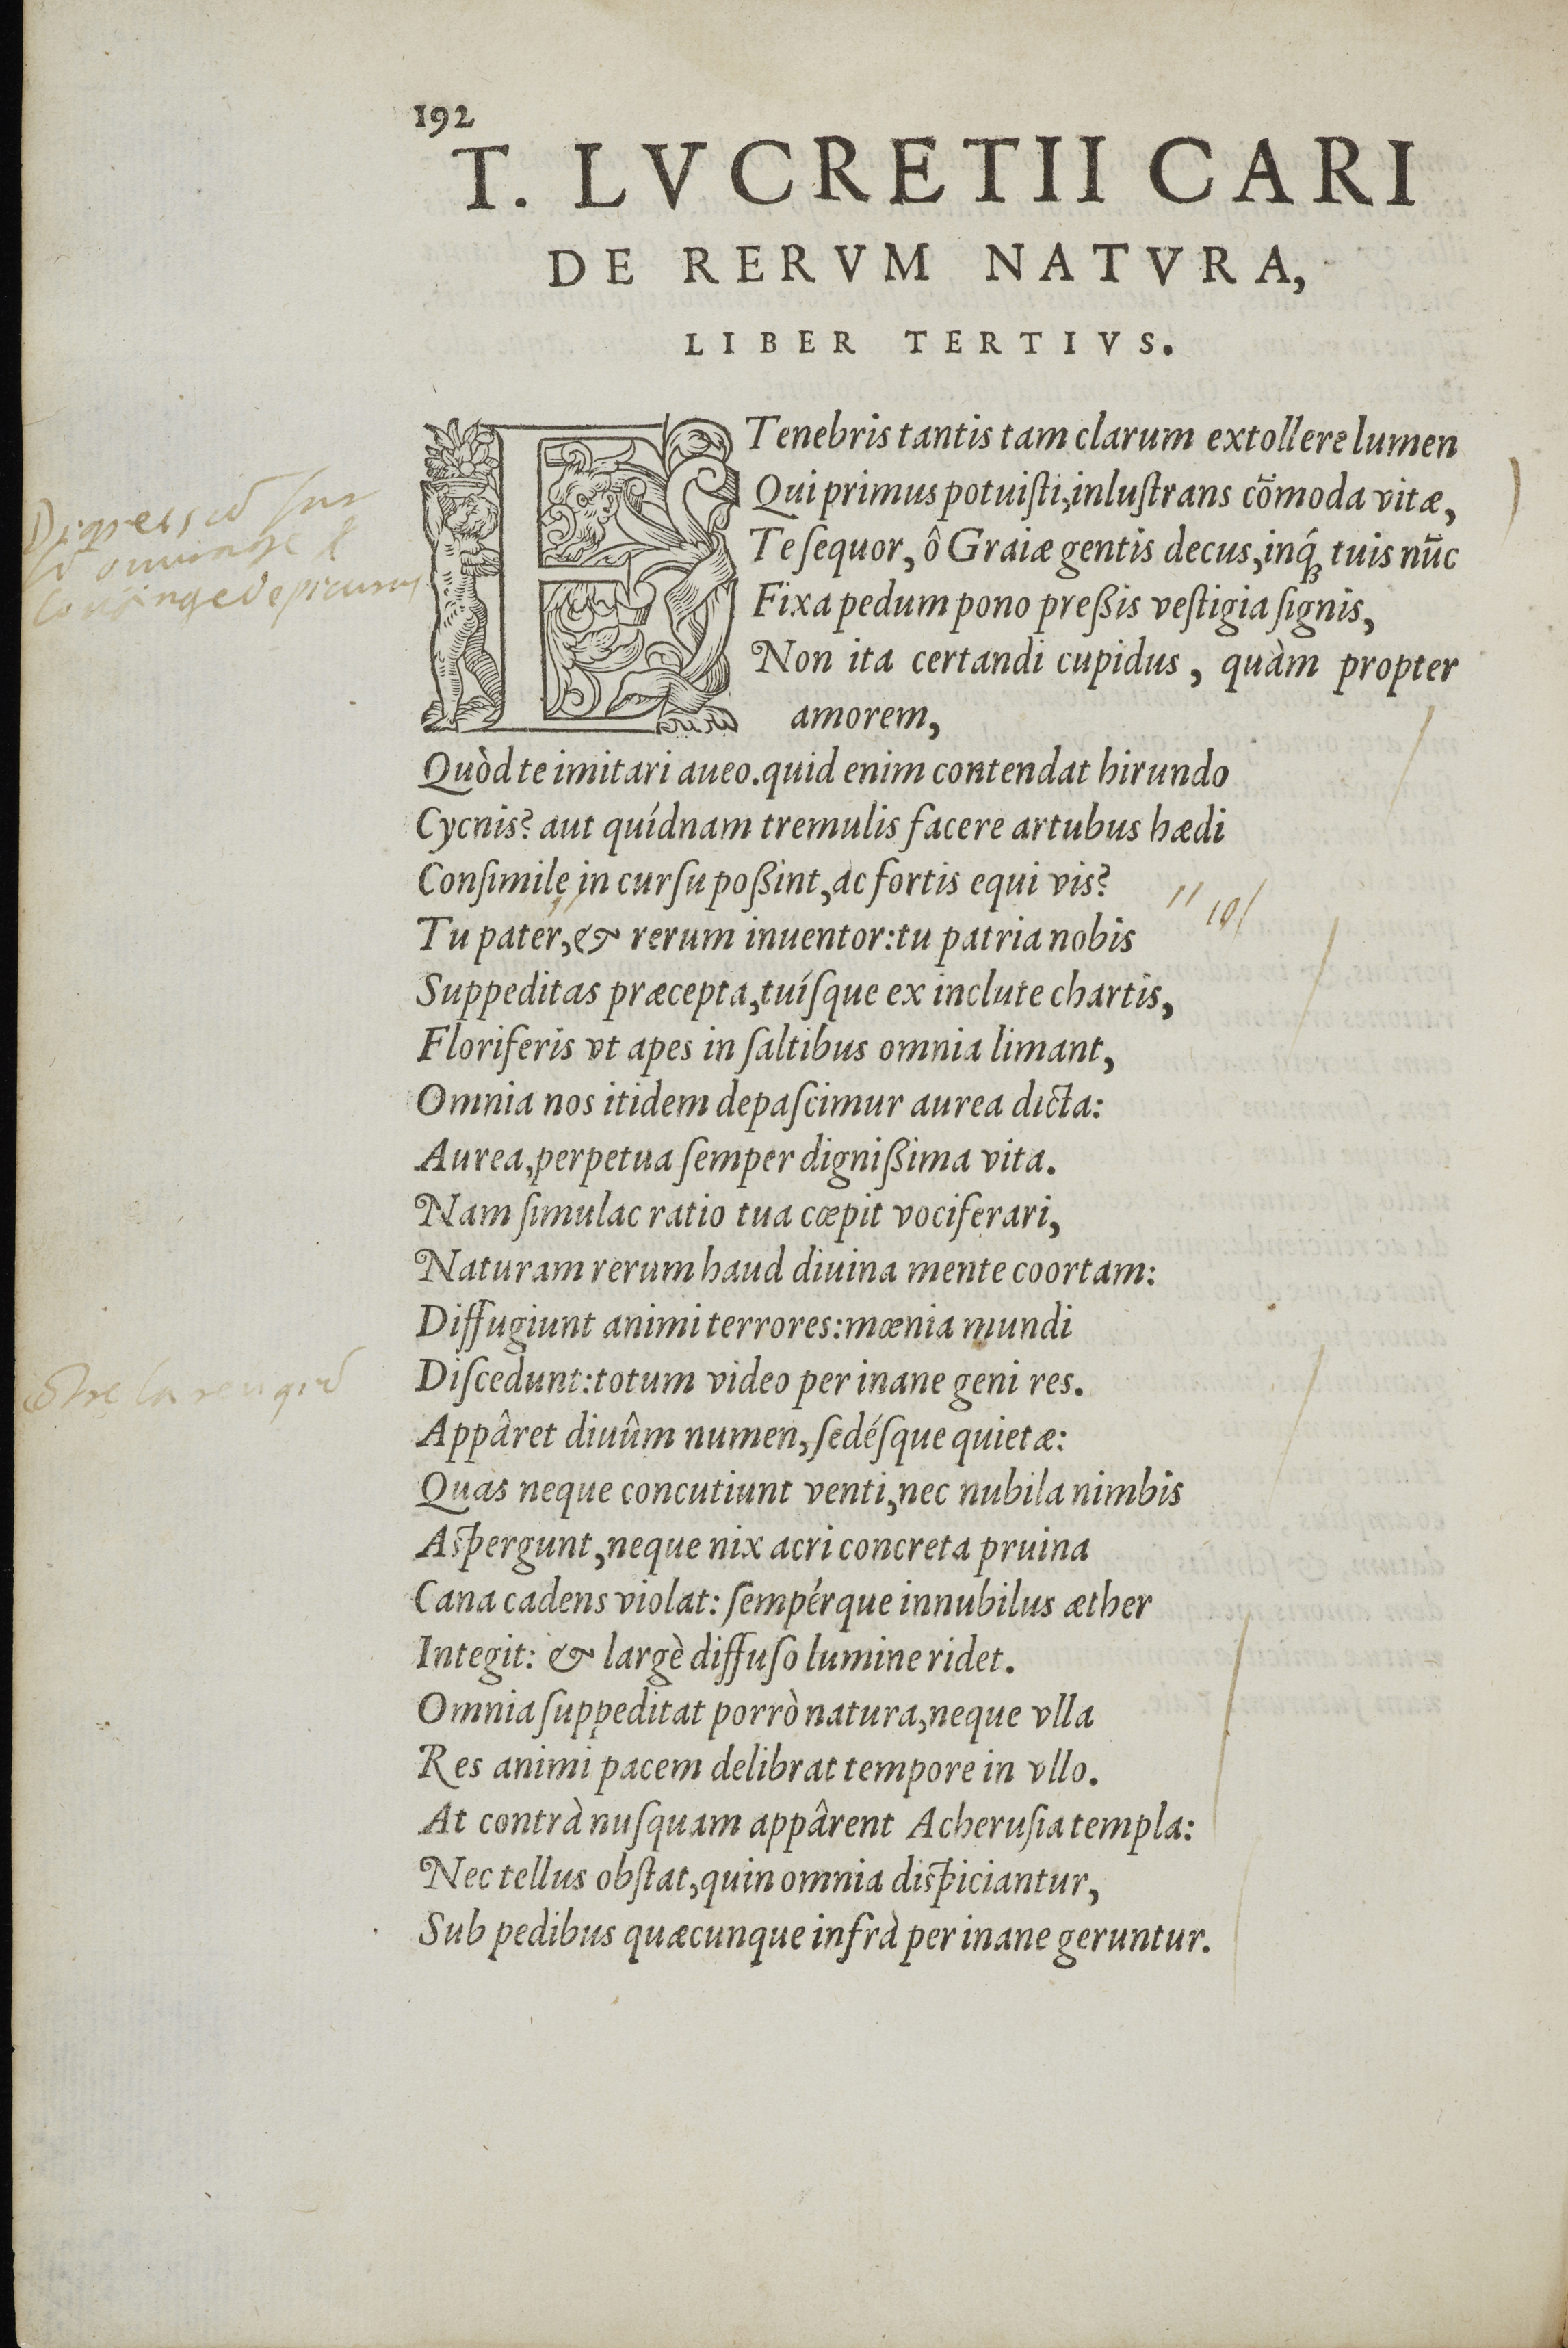 192
T. LVCRETII CARI
DE RERVM NATVRA,
LIBER TERTIVS.
E Tenebris tantis tam clarum extollere lumen
Qui primus potuiſti, inluſtrans cõmoda vitæ,
Te ſequor, ô Graiæ gentis decus, inq́; tuis nūc
Fixa pedum pono preßis veſtigia ſignis,
Non ita certandi cupidus, quàm propter
amorem,
Quòd te imitari aueo. quid enim contendat hirundo
Cycnis? aut quídnam tremulis facere artubus hædi
Conſimile in curſu poßint, ac fortis equi vis?
Tu pater, & rerum inuentor: tu patria nobis
Suppeditas præcepta, tuíſque ex inclute chartis,
Floriferis vt apes in ſaltibus omnia limant,
Omnia nos itidem depaſcimur aurea dicta:
Aurea, perpetua ſemper dignißima vita.
Nam ſimulac ratio tua cœpit vociferari,
Naturam rerum haud diuina mente coortam:
Diffugiunt animi terrores: mœnia mundi
Diſcedunt: totum video per inane geni res.
Appâret diuûm numen, ſedéſque quietæ:
Quas neque concutiunt venti, nec nubila nimbis
Aſpergunt, neque nix acri concreta pruina
Cana cadens violat: ſempérque innubilus æther
Integit: & largè diffuſo lumine ridet.
Omnia ſuppeditat porrò natura, neque vlla
Res animi pacem delibrat tempore in vllo.
At contrà nuſquam appârent Acheruſia templa:
Nec tellus obſtat, quin omnia diſpiciantur,
Sub pedibus quæcunque infrà per inane geruntur.